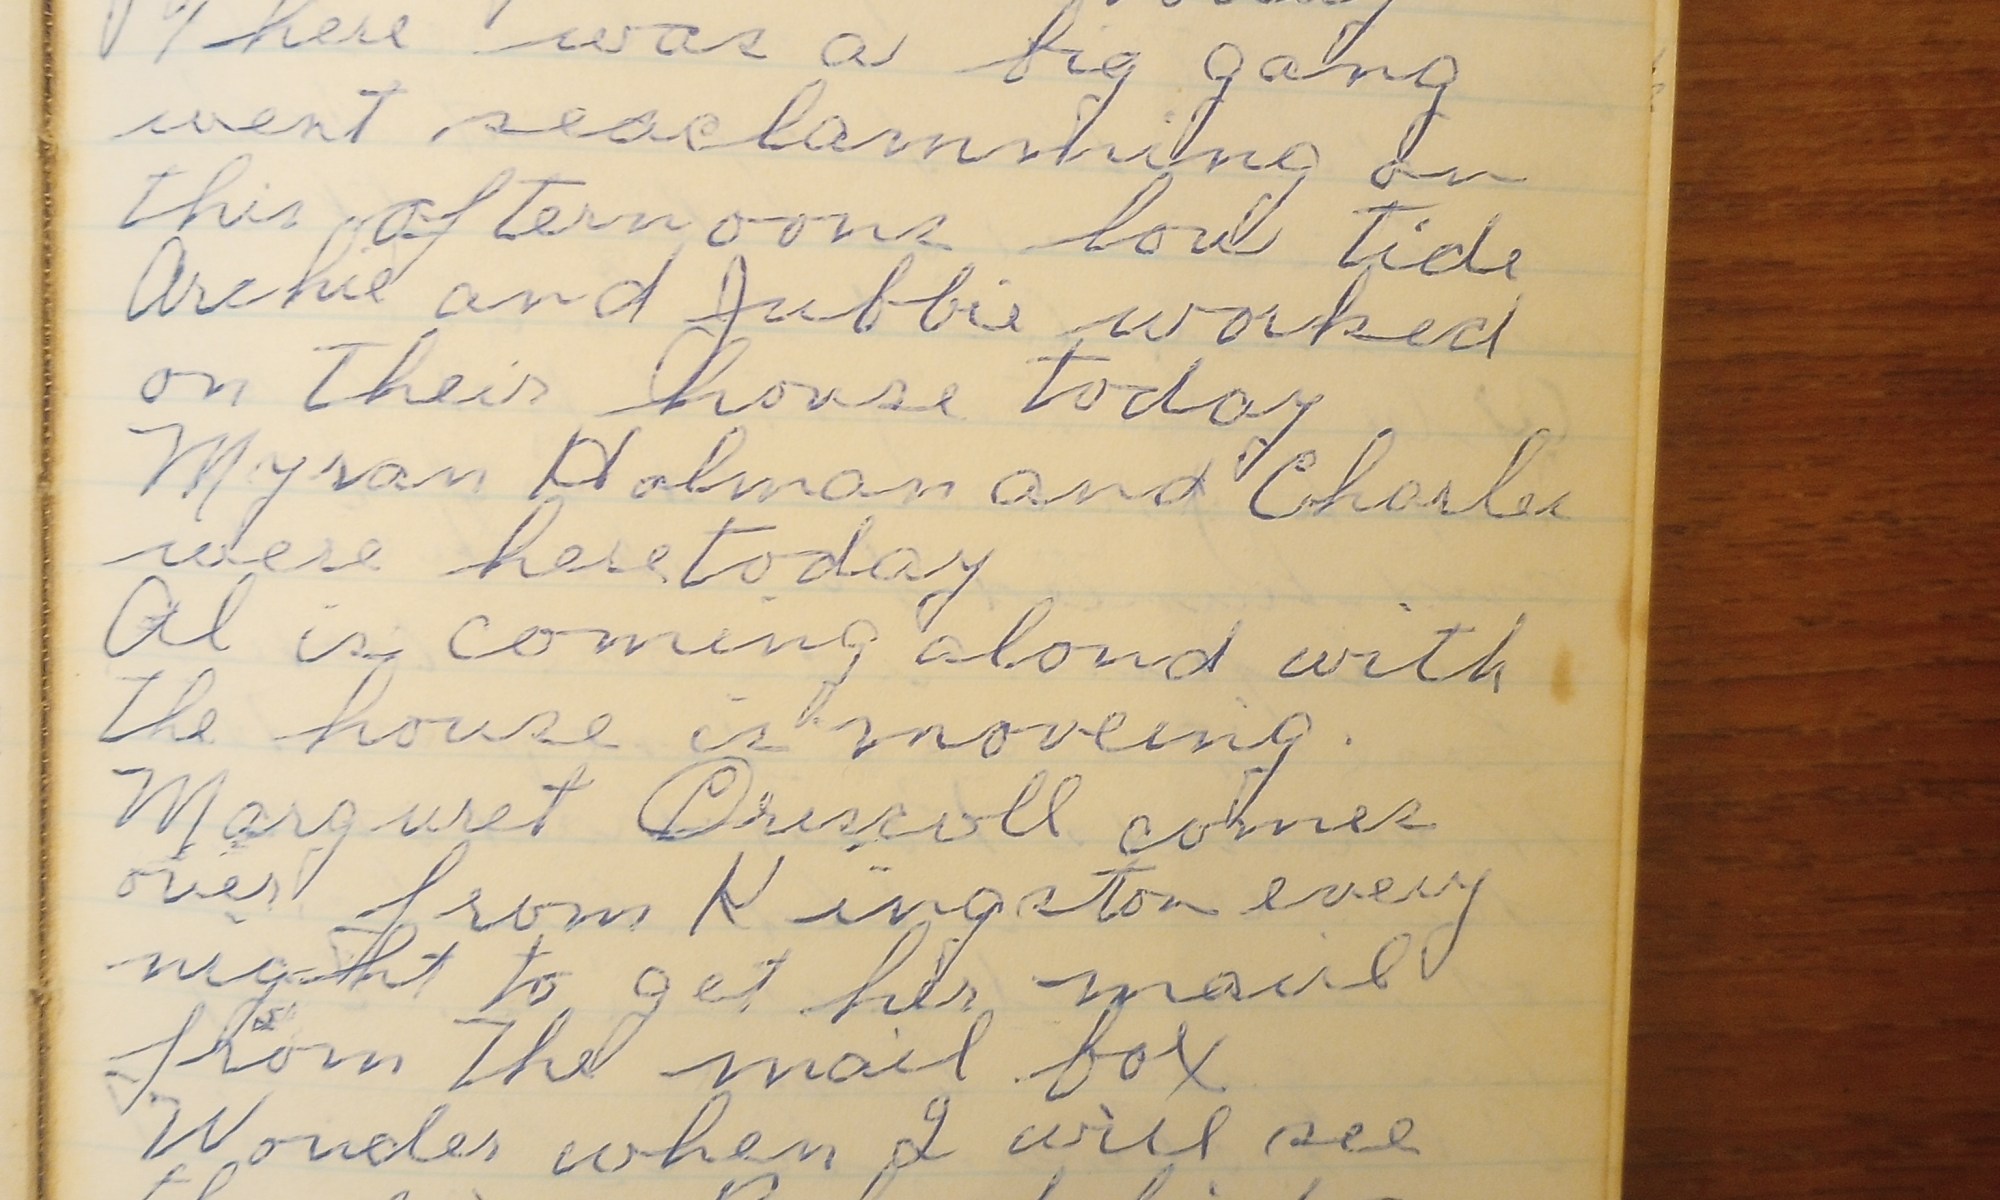 There was a big gang
went seaclamming on
this afternoons low tide
Archie and Jubbie worked
on their house today
Myran Holman and Charles
were here today
Al is coming alond with
the house is moveing.
Marguret Driscoll comes
over from Kingston every
night to get her mail
from the mail box
Wonder when I will see